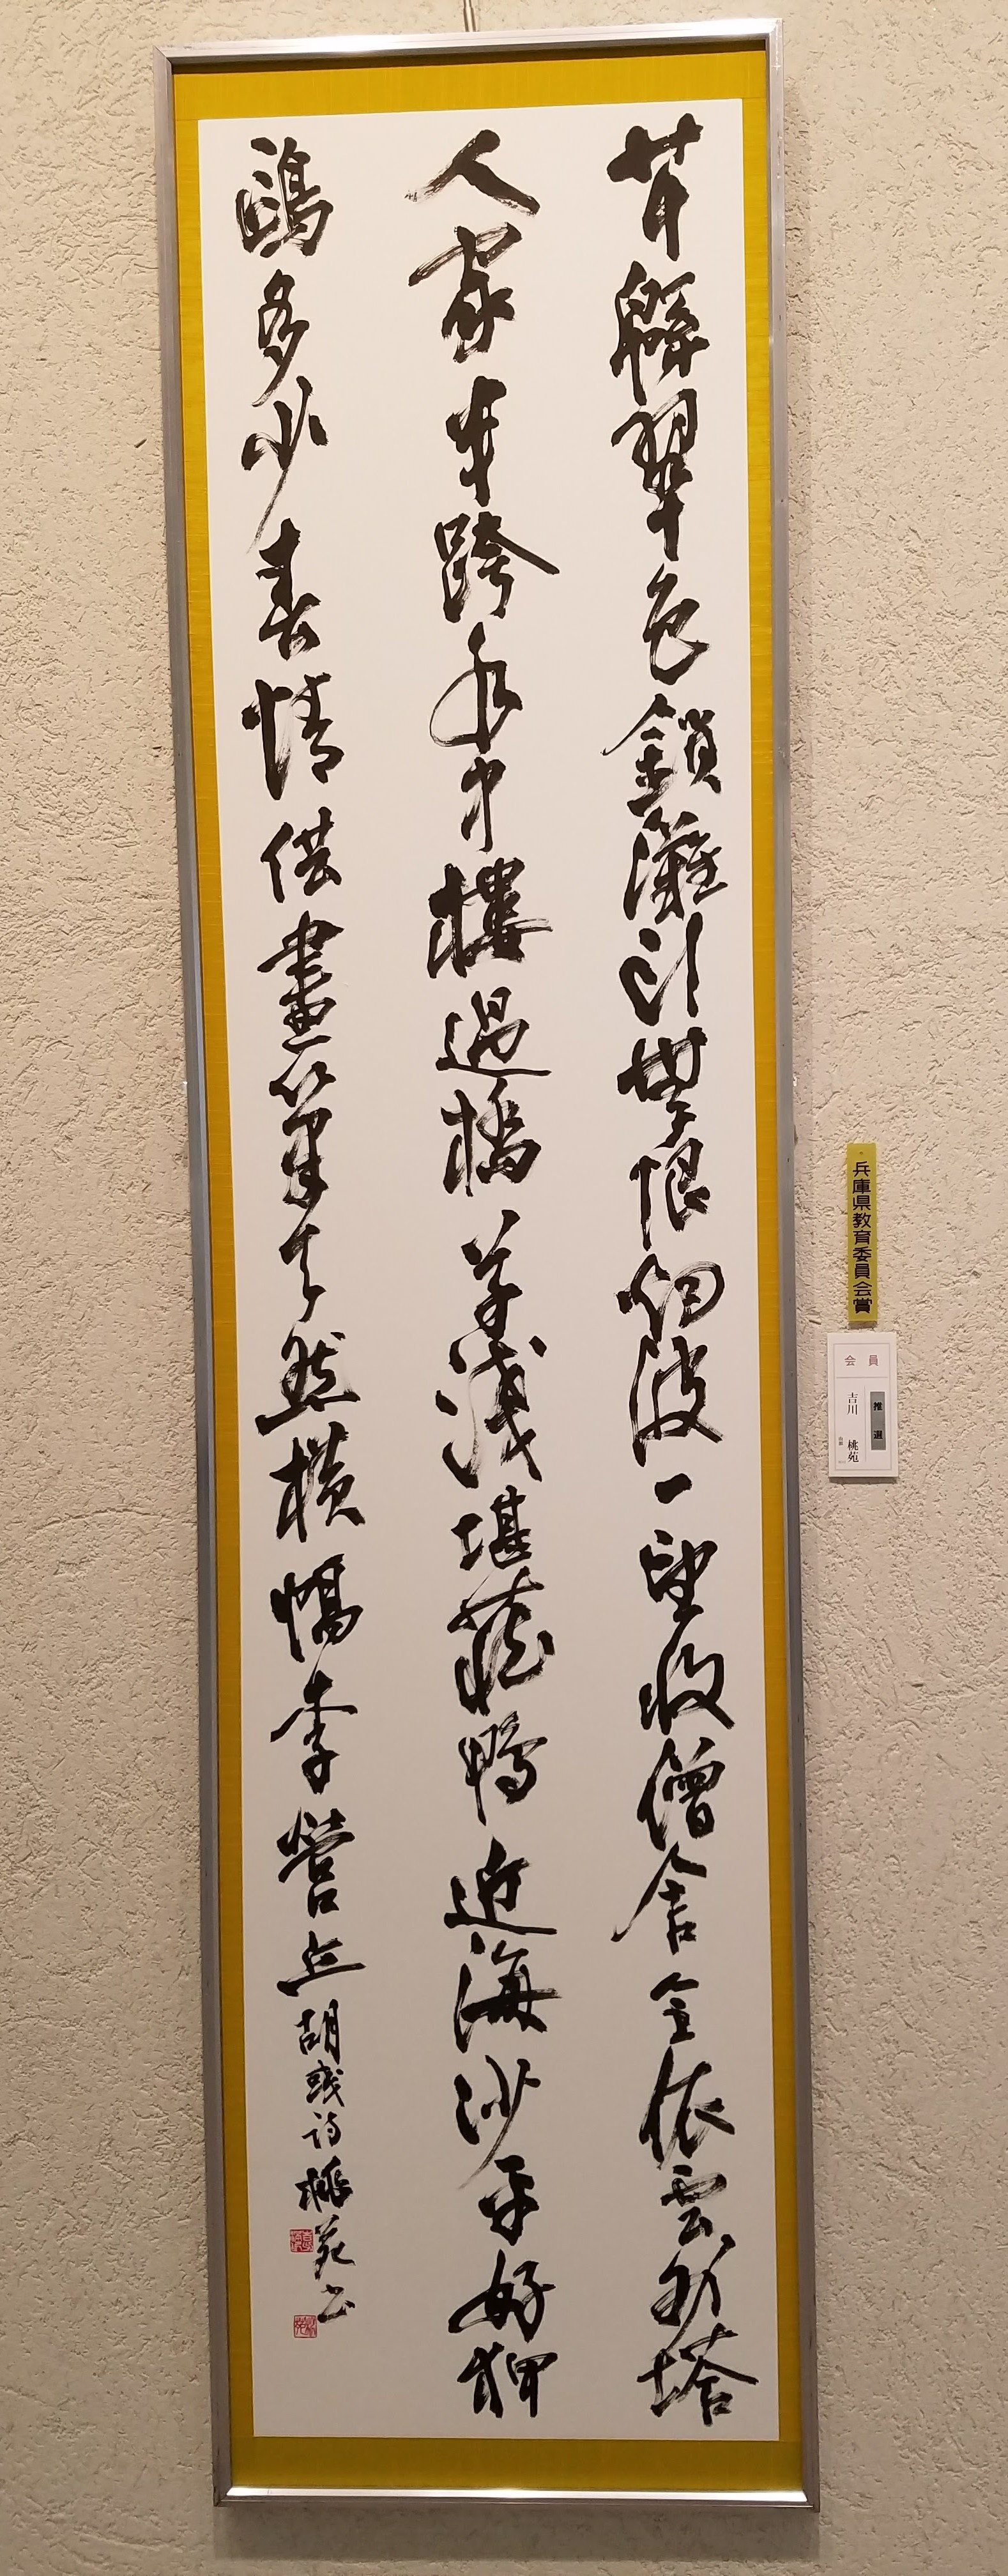 芊緜翠色鎖灘頭無限烟波一望收僧舍全依雲外塔
人家半跨水中樓過橋草淺堪藏鴨近海沙平好狎
鷗多少春情供畫筆天然橫幅李營丘胡彧詩桃苑書
兵庫県教育委員会賞
会員
推選
吉川桃苑